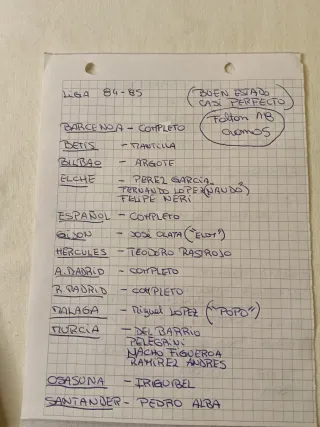 LIGA 84-85
(BUEN ESTADO
CASI PERFECTO)
Faltan 18
cromos
BARCENOA - COMPLETO
BETIS - MANTILLA
BILBAO - ARGOTE
ELCHE - PEREZ GARCIA
FERNANDO LOPEZ (NANDO)
FELIPE NERI
ESPAÑOL - COMPLETO
GIJON - JOSÉ OLATA ("ELOY")
HÉRCULES - TEODORO RASTROJO
A. MADRID - COMPLETO
R. MADRID - COMPLETO
MALAGA - Miguel LOPEZ ("POPO")
MURCIA - DEL BARRIO
PELEGRINI
NACHO FIGUEROA
RAMIREZ ANDRES
OSASUNA - IRIGUIBEL
SANTANDER - PEDRO ALBA